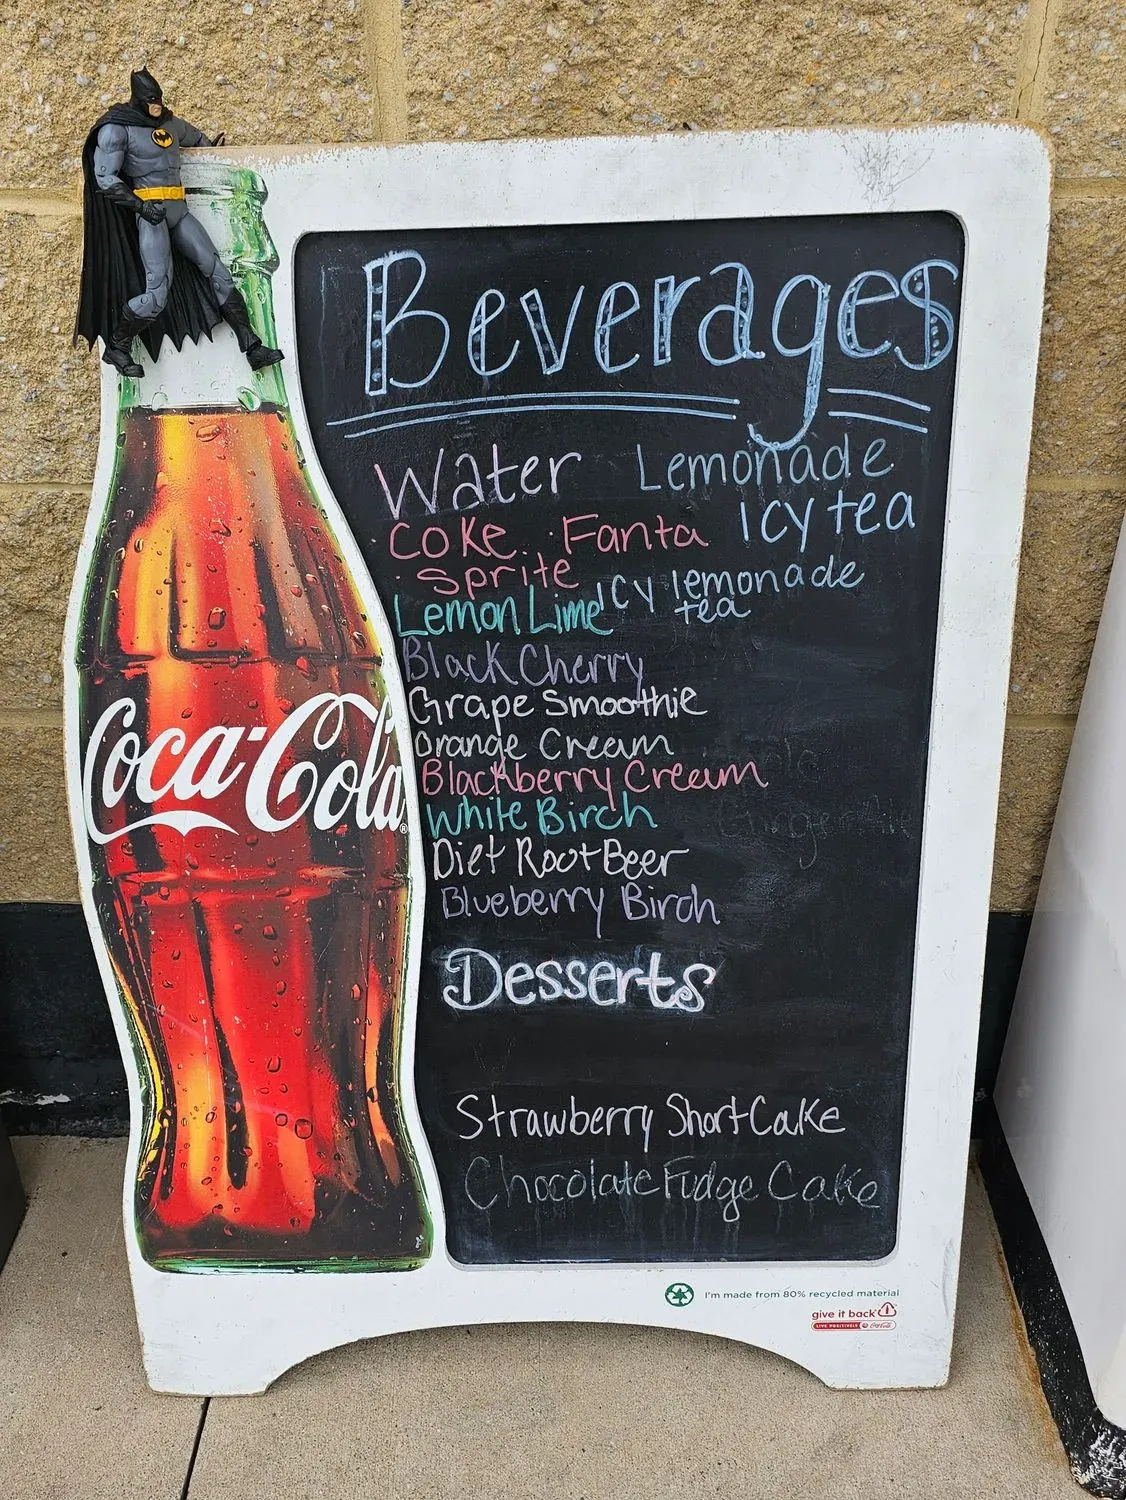 Beverages
Water Lemonade
Coke Fanta Icy tea
Sprite Icy lemonade
tea
Lemon Lime
Black Cherry
Grape Smoothie
Orange Cream
Blackberry Cream
White Birch
Diet Root Beer
Blueberry Birch
Desserts
Strawberry ShortCake
Chocolate Fudge Cake
Coca-Cola®
I'm made from 80% recycled material
give it back
LIVE POSITIVELY Coca-Cola